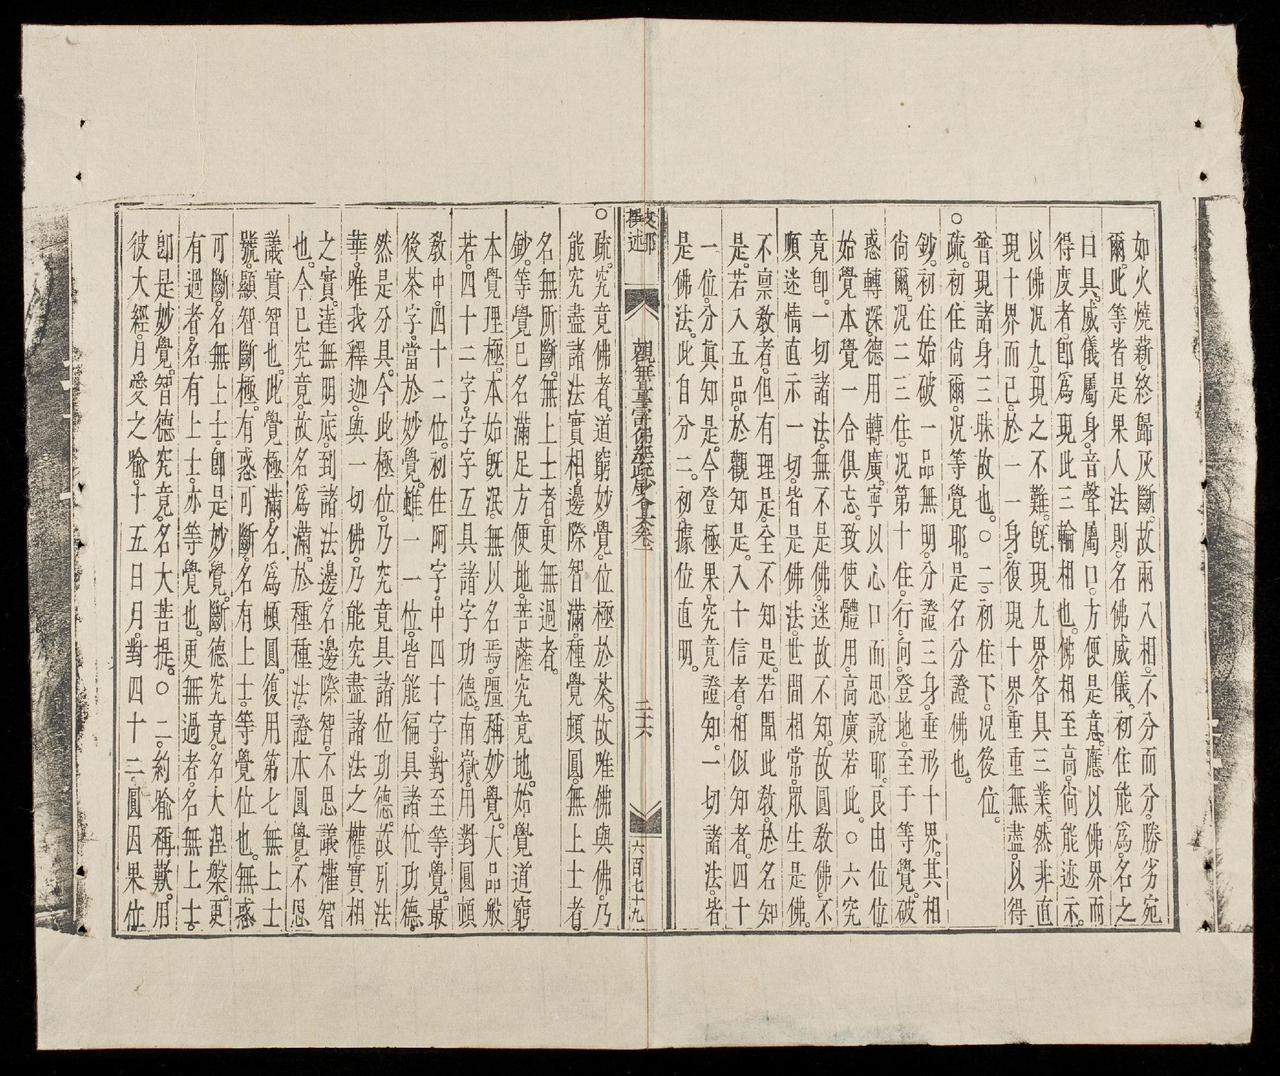 如火燒薪終歸灰斷。故兩八相。不分而分。勝劣宛
爾。此等者。是果人法則。名佛威儀。初住能爲。名之
曰具。威儀屬身。音聲屬口。方便是意。應以佛界而
得度者。卽爲現此三輪相也。佛相至高。尙能述示。
以佛况九。現之不難。旣現九界。各具三業。然非直
現十界而已。於一一身。復現十界。重重無盡。以得
普現諸身三昧故也。○二。初住下。况後位。
○疏。初住尙爾。况等覺耶。是名分證佛也。
鈔。初住始破一品無明。分證三身。垂形十界。其相
尙爾。况二住。况第十住。行。向。登地。至于等覺。破
惑轉深。德用轉廣。寧以心口而思說耶。良由位位
始覺本覺一合俱忘。致使體用高廣若此。○六究
竟卽。一切諸法。無不是佛。迷故不知。故圓教佛。不
順迷情。直示一切。皆是佛法。世間相常。眾生是佛。
不稟教者。但有理是。全不知是。若聞此教。於名知
是。若入五品。於觀知是。入十信者。相似知者。四十
一位。分真知是。今登極果。究竟證知。一切諸法。皆
是佛法。此自分二。初。據位直明。
支那
撰述
觀無量壽佛經疏鈔會本卷一
二十六
六百七十九
○疏。究竟佛者。道窮妙覺。位極於茶。故唯佛與佛。乃
能究盡諸法實相。邊際智滿。種覺頓圓。無上士者。
名無所斷。無上士者。更無過者。
鈔。等覺已名滿足方便地。菩薩究竟地。始覺道窮
本覺理極。本始旣泯。無以名焉。彊稱妙覺。大品般
若。四十二字。字字互具諸字功德。南嶽用對圓頓
教中。四十二位。初住阿字。中四十字。對至等覺。最
後茶字。當於妙覺。雖一一位。皆能徧具諸位功德。
然是分具。今此極位。乃究竟具諸位功德。故引法
華。唯我釋迦。與一切佛。乃能究盡諸法之權實相
之實。達無明底。到諸法邊。名邊際智。不思議權智
也。今已究竟。故名爲滿。於種種法。證本圓覺。不思
議實智也。此覺極滿。名爲頓圓。復用第七無上士
號。顯智斷極。有惑可斷。名有上士。等覺位也。無惑
可斷。名無上士。卽是妙覺。斷德究竟。名大涅槃。更
有過者。名有上士。亦等覺也。更無過者。名無上士。
卽是妙覺。智德究竟。名大菩提。○二。約喻稱歎。用
彼大經。月愛之喻。十五日月。對四十二圓因果位